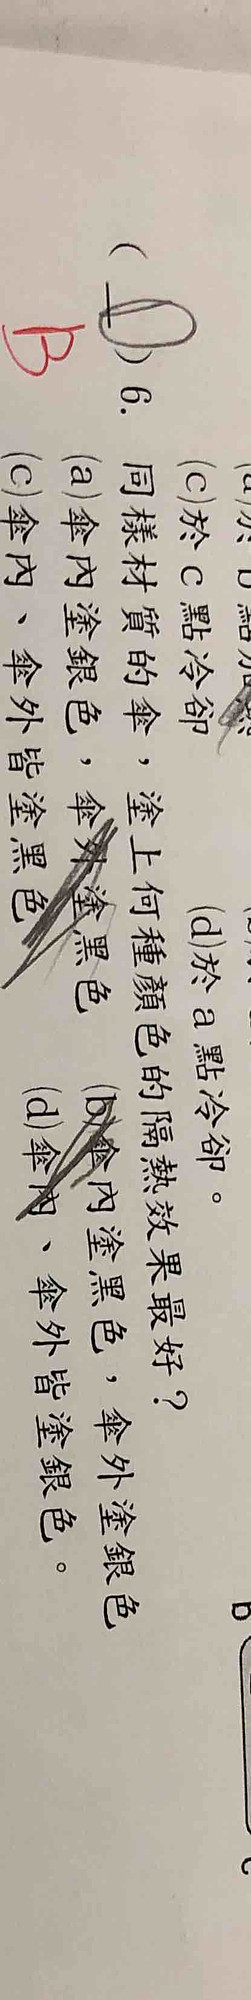 (c)於 c 點冷卻 (d)於 a 點冷卻。
b
c
( D ) 6. 同樣材質的傘，塗上何種顏色的隔熱效果最好？
B
(a)傘內塗銀色，傘外塗黑色 (b)傘內塗黑色，傘外塗銀色
(c)傘內、傘外皆塗黑色 (d)傘內、傘外皆塗銀色。